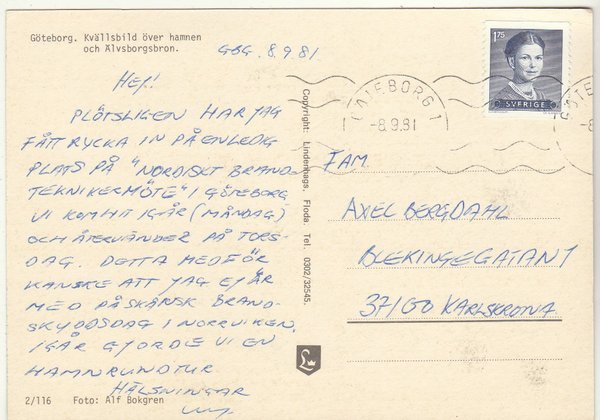 Göteborg. Kvällsbild över hamnen
och Älvsborgsbron.
GBG. 8.9.81
HEJ!
PLÖTSLIGEN HAR JAG
FÅTT RYCKA IN PÅ EN LEDIG
PLATS PÅ "NORDISKT BRAND-
TEKNIKERMÖTE" I GÖTEBORG.
VI KOM HIT IGÅR (MÅNDAG)
OCH ÅTERVÄNDER PÅ TORS-
DAG. DETTA MEDFÖR
KANSKE ATT JAG EJ ÄR
MED PÅ SKÅNSK BRAND-
SKYDDSDAG I NORRVIKEN.
IGÅR GJORDE VI EN
HAMNRUNDTUR
HÄLSNINGAR
2/116 Foto: Alf Bokgren
Copyright: Lindenhags. Floda. Tel. 0302/32545.
L
1.75
SVERIGE
GÖTEBORG 1
-8.9.81
-8.
FAM.
AXEL BERGDAHL
BLEKINGEGATAN 1
37100 KARLSKRONA